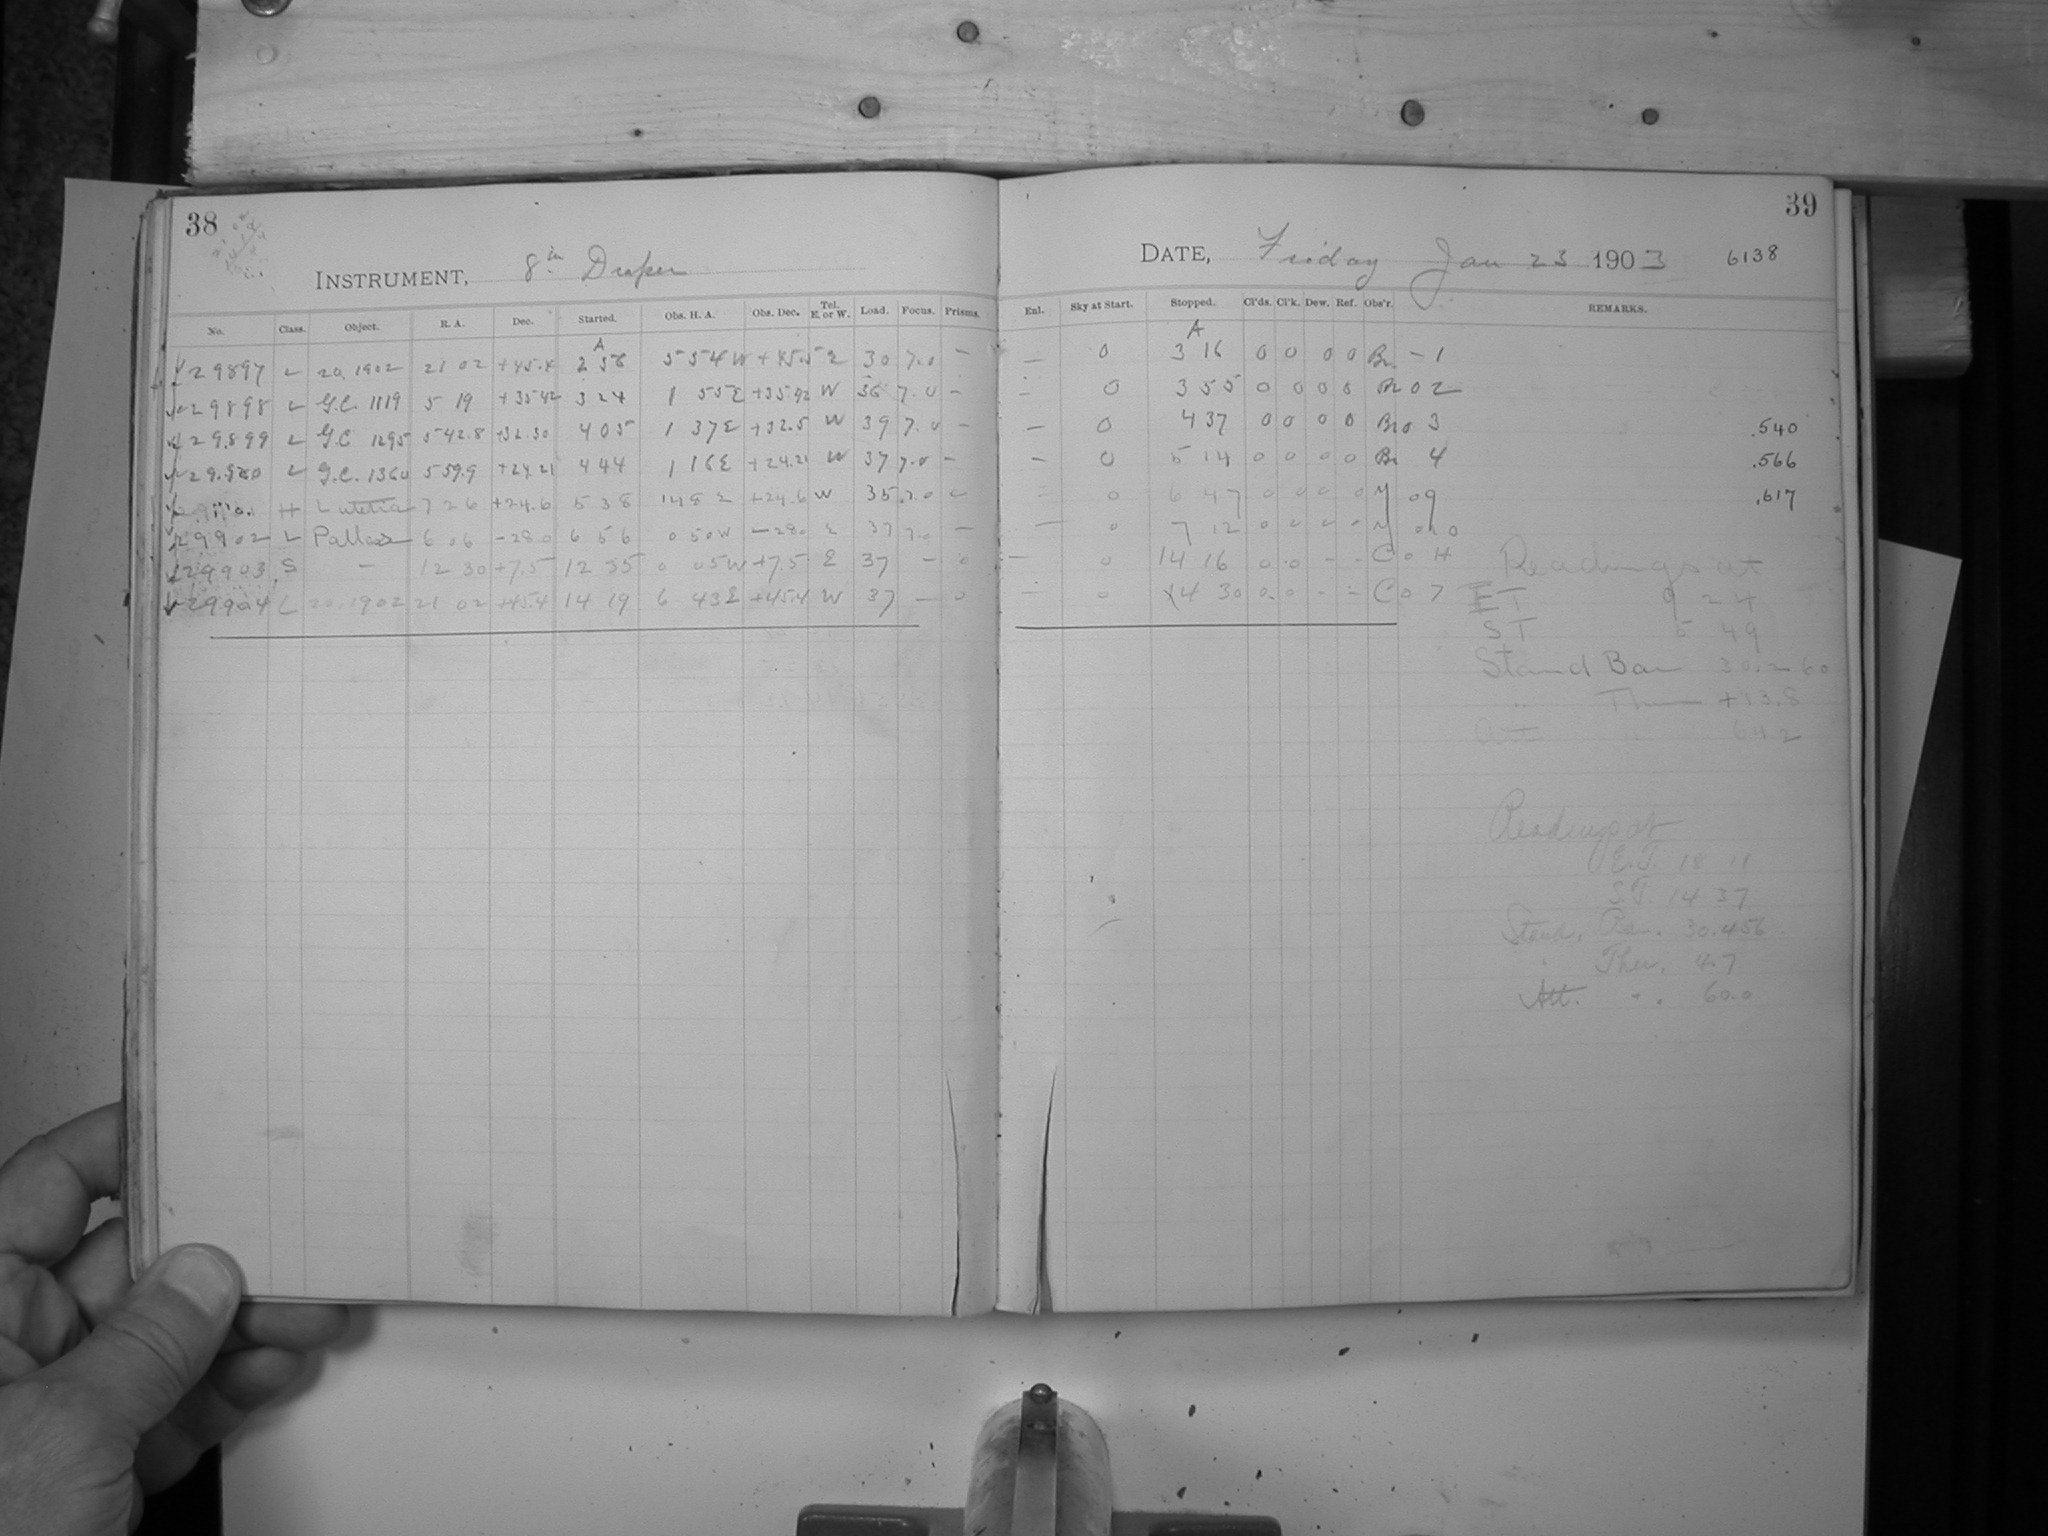 38
INSTRUMENT, 8 in Draper
No. Class. Object. R. A. Dec. Started. Obs. H. A. Obs. Dec. Tel. E. or W. Load. Focus. Prisms.
A
29897 L 20.1902 21 02 +45.4 2 58 5 54 W +45.5 E 30 7.0 —
29898 L G.C. 1119 5 19 +35 42 3 24 1 55 E +35.42 W 36 7.0 —
29899 L G.C. 1295 5 42.8 +32.30 4 05 1 37 E +32.5 W 39 7.0 —
L G.C. 1360 5 59.9 +24.21 4 44 1 16 E +24.21 W 37 7.0 —
H Lutetia 7 26 +24.6 5 38 1 48 E +24.6 W 35 7.0 —
29902 L Pallas 6 06 -28.0 6 56 0 50 W -28.0 E 37 7.0 —
29903 S — 12 30 +7.5 12 35 0 05 W +7.5 E 37 — 0
29904 L 20.1902 21 02 +45.4 14 19 6 43 E +45.4 W 37 — 0
39
DATE, Friday Jan 23 1903 6138
Enl. Sky at Start. Stopped. Cl'ds. Cl'k. Dew. Ref. Obs'r. REMARKS.
A
— 0 3 16 0 0 0 0 Br — 1
— 0 3 55 0 0 0 0 Br 0 2
— 0 4 37 0 0 0 0 Br 0 3 .540
— 0 5 14 0 0 0 0 Br 4 .566
— 0 6 47 0 0 0 0 M 0 9 .617
— 0 7 12 0 0 0 - M
— 0 14 16 0 0 - - C 0 H
— 0 14 30 0 0 - - C 0 7
Readings at
E T 9 24
S T 5 49
Stand Bar 30.260
" Ther +13.8
Att " 64.2
Readings at
E.T. 18 11
S.T. 14 37
Stand. Bar. 30.456
" Ther. 4.7
Att. " 60.0